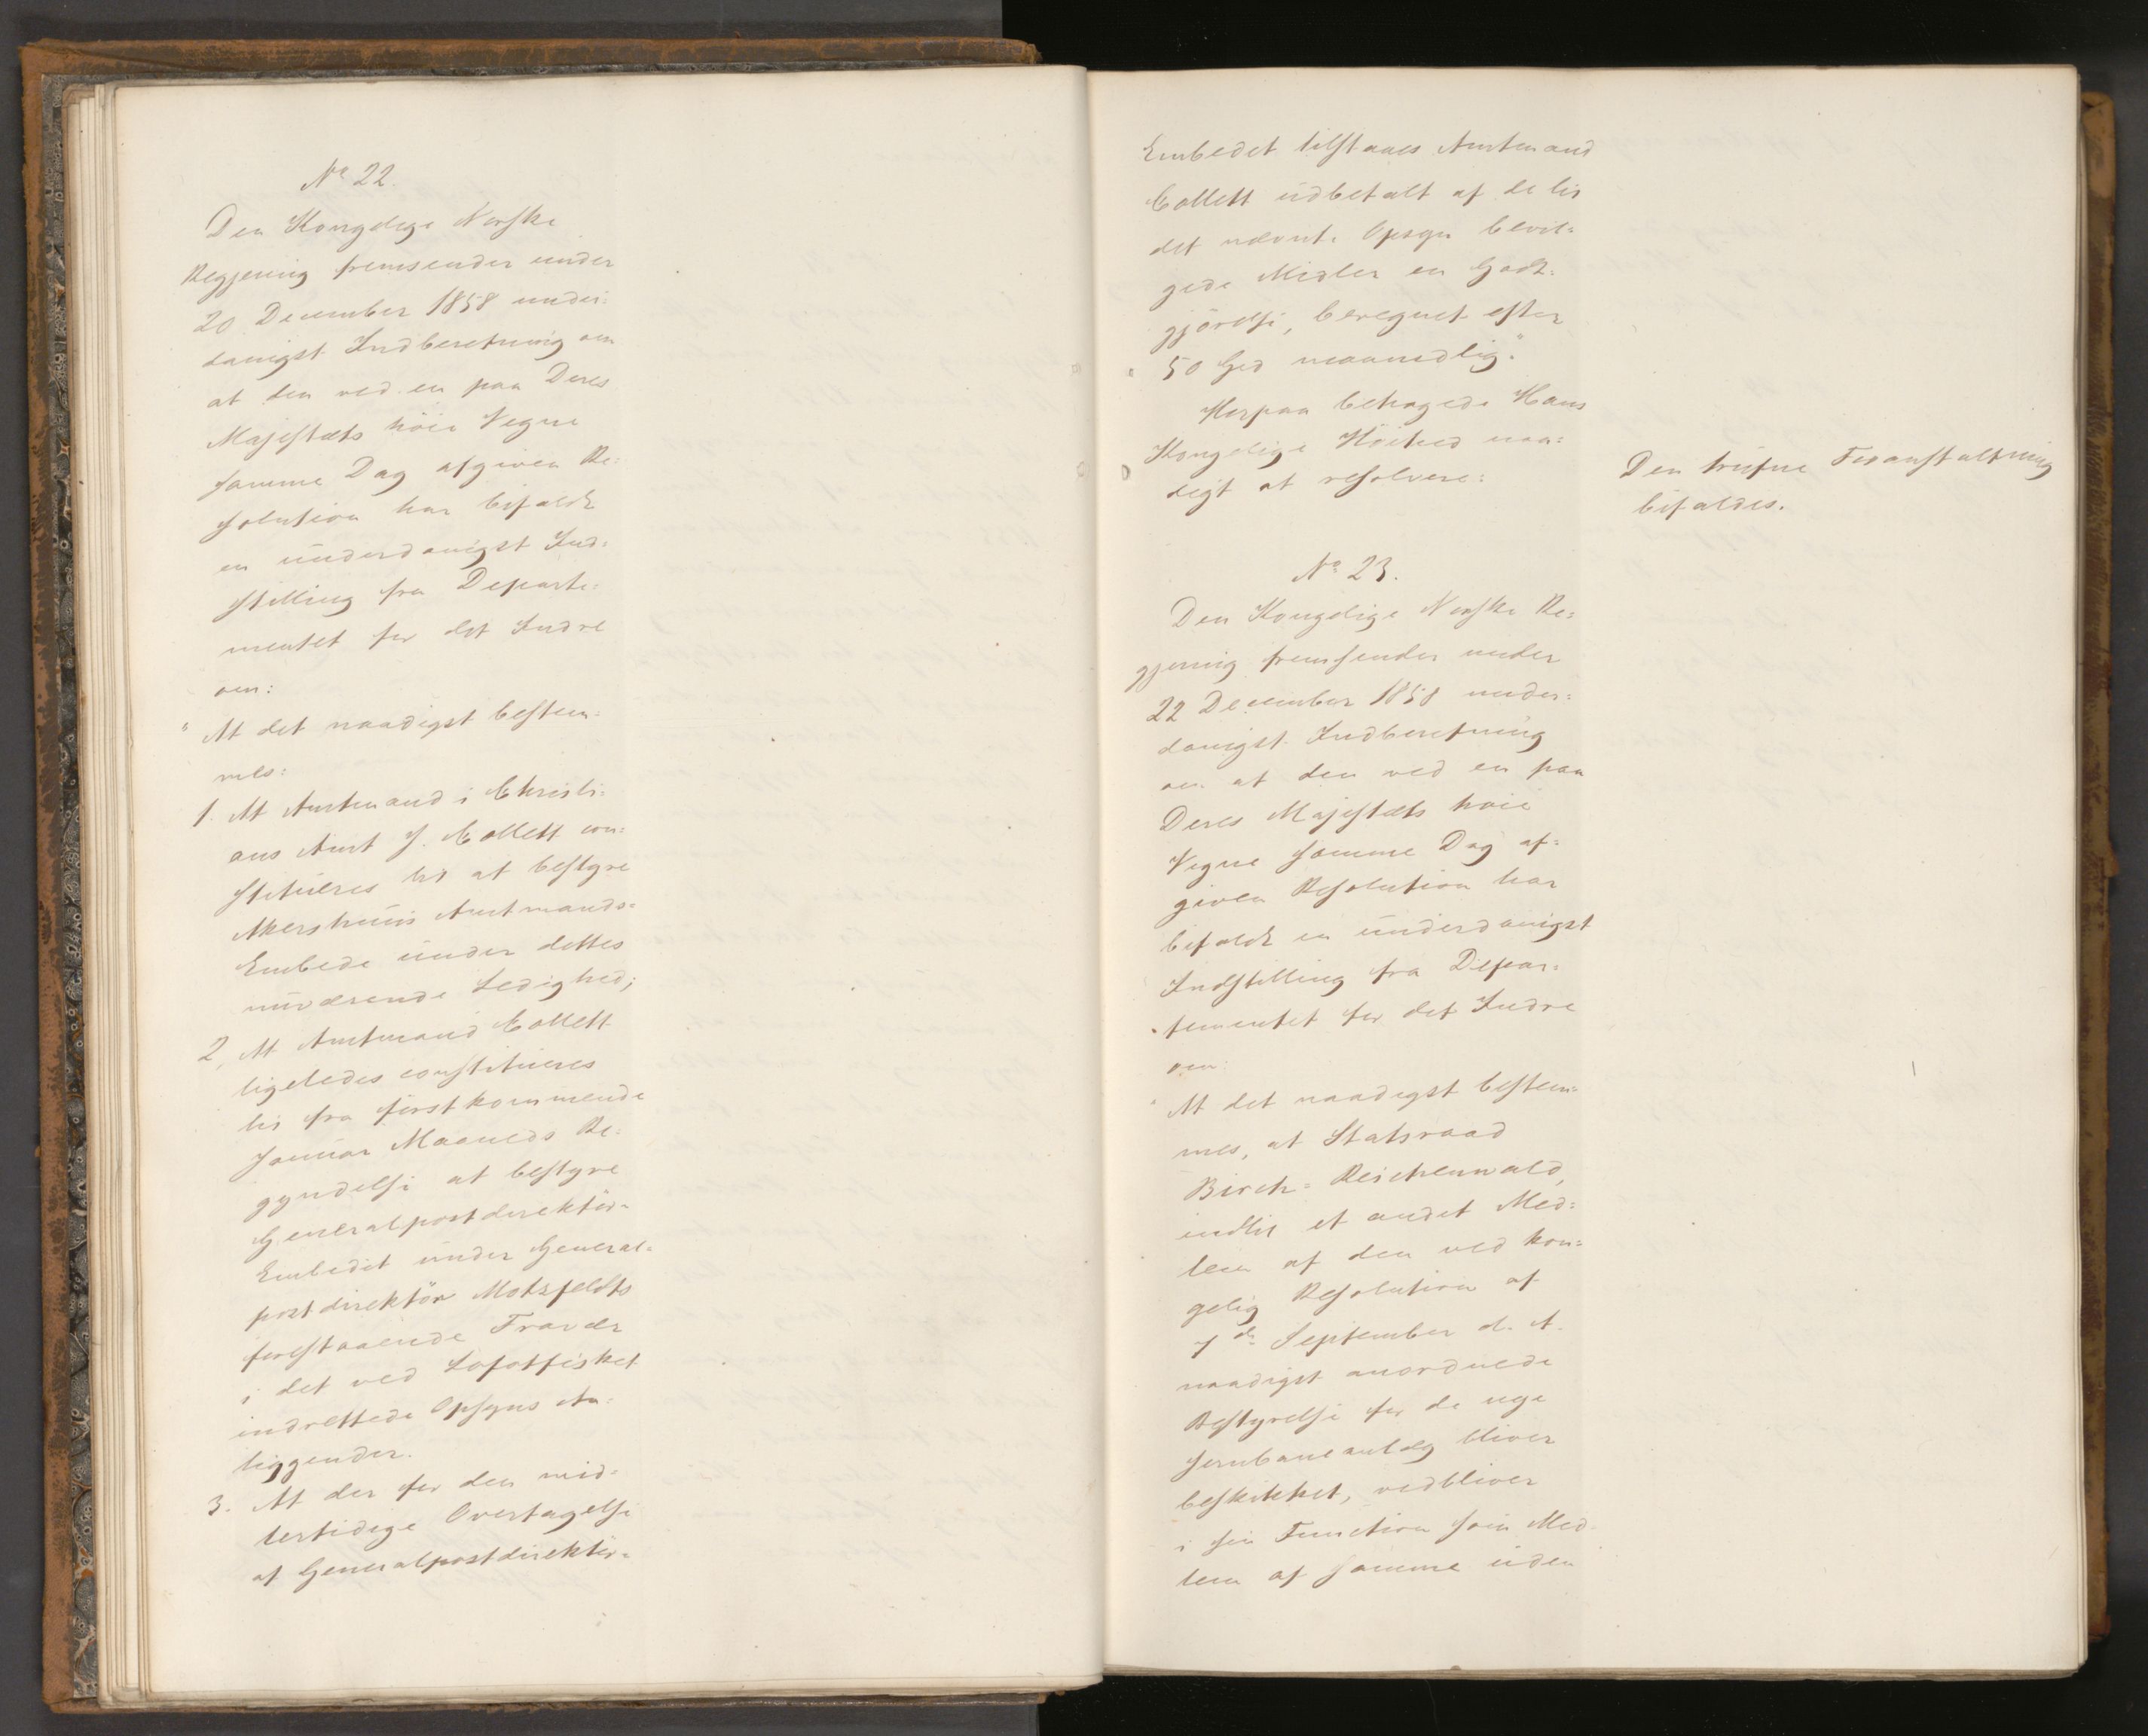 No 22.
Den Kongelige Norske
Regjering fremsender under
20 December 1858 under=
danigst Indberetning om
at den ved en paa Deres
Majestæts höie Vegne
samme Dag afgiven Re=
solution har bifaldt
en underdanigst Ind=
stilling fra Departe=
mentet for det Indre
om:
"At det naadigst bestem=
mes:
1. At Amtmand i Christi=
ans Amt J. Collett con=
stitueres til at bestyre
Akershuus Amtmands=
Embede under dettes
nuværende Ledighed;
2, At Amtmand Collett
ligeledes constitueres
til fra förstkommende
Januar Maaneds Be=
gyndelse at bestyre
Generalpostdirektör=
Embedet under General=
postdirektör Motzfeldts
forestaaende Fravær
i det ved Lofotfisket
indrettede Opsyns An=
liggender.
3. At der for den mid=
lertidige Overtagelse
af Generalpostdirektör=
Embedet tilstaaes Amtmand
Collett udbetalt af de til
det nævnte Opsyn bevil=
gede Midler en Godt=
gjörelse, beregnet efter
50 Spd maanedlig."
Herpaa behagede Hans
Kongelige Höihed naa=
digt at resolvere:
Den trufne Foranstaltning
bifaldes.
No 23.
Den Kongelige Norske Re=
gjering fremsender under
22 December 1858 under=
danigst Indberetning
om at den ved en paa
Deres Majestæts höie
Vegne samme Dag af=
given Resolution har
bifaldt en underdanigst
Indstilling fra Depar=
tementet for det Indre
om:
"At det naadigst bestem=
mes, at Statsraad
Birch=Reichenwald,
indtil et andet Med=
lem af den ved kon=
gelig Resolution af
7de September d. A.
naadigst anordnede
Bestyrelse for de nye
Jernbaneanlæg bliver
beskikket, vedbliver
i sin Function som Med=
lem af samme uden